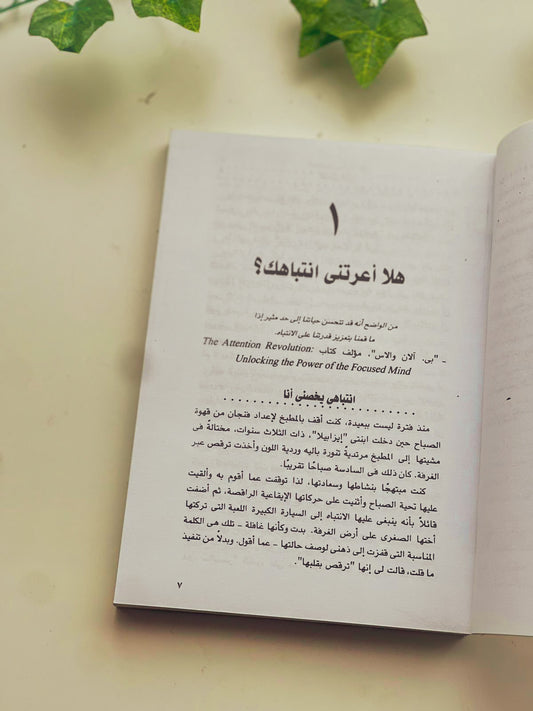 ١
هلا أعرتنى انتباهك؟
من الواضح أنه قد تتحسن حياتنا إلى حد مثير إذا
ما قمنا بتعزيز قدرتنا على الانتباه.
- "بى. آلان والاس"، مؤلف كتاب The Attention Revolution:
Unlocking the Power of the Focused Mind
انتباهى يخصنى أنا
منذ فترة ليست ببعيدة، كنت أقف بالمطبخ لإعداد فنجان من قهوة
الصباح حين دخلت ابنتى "إيزابيلا"، ذات الثلاث سنوات، مختالةً فى
مشيتها إلى المطبخ مرتديةً تنورة باليه وردية اللون وأخذت ترقص عبر
الغرفة. كان ذلك فى السادسة صباحًا تقريبًا.
كنت مبتهجًا بنشاطها وسعادتها، لذا توقفت عما أقوم به وألقيت
عليها تحية الصباح وأثنيت على حركاتها الإيقاعية الراقصة، ثم أضفت
قائلاً بأنه ينبغى عليها الانتباه إلى السيارة الكبيرة اللعبة التى تركتها
أختها الصغرى على أرض الغرفة. بدت وكأنها غافلة - تلك هى الكلمة
المناسبة التى قفزت إلى ذهنى لوصف حالتها - عما أقول. وبدلاً من تنفيذ
ما قلت، قالت لى إنها "ترقص بقلبها".
٧